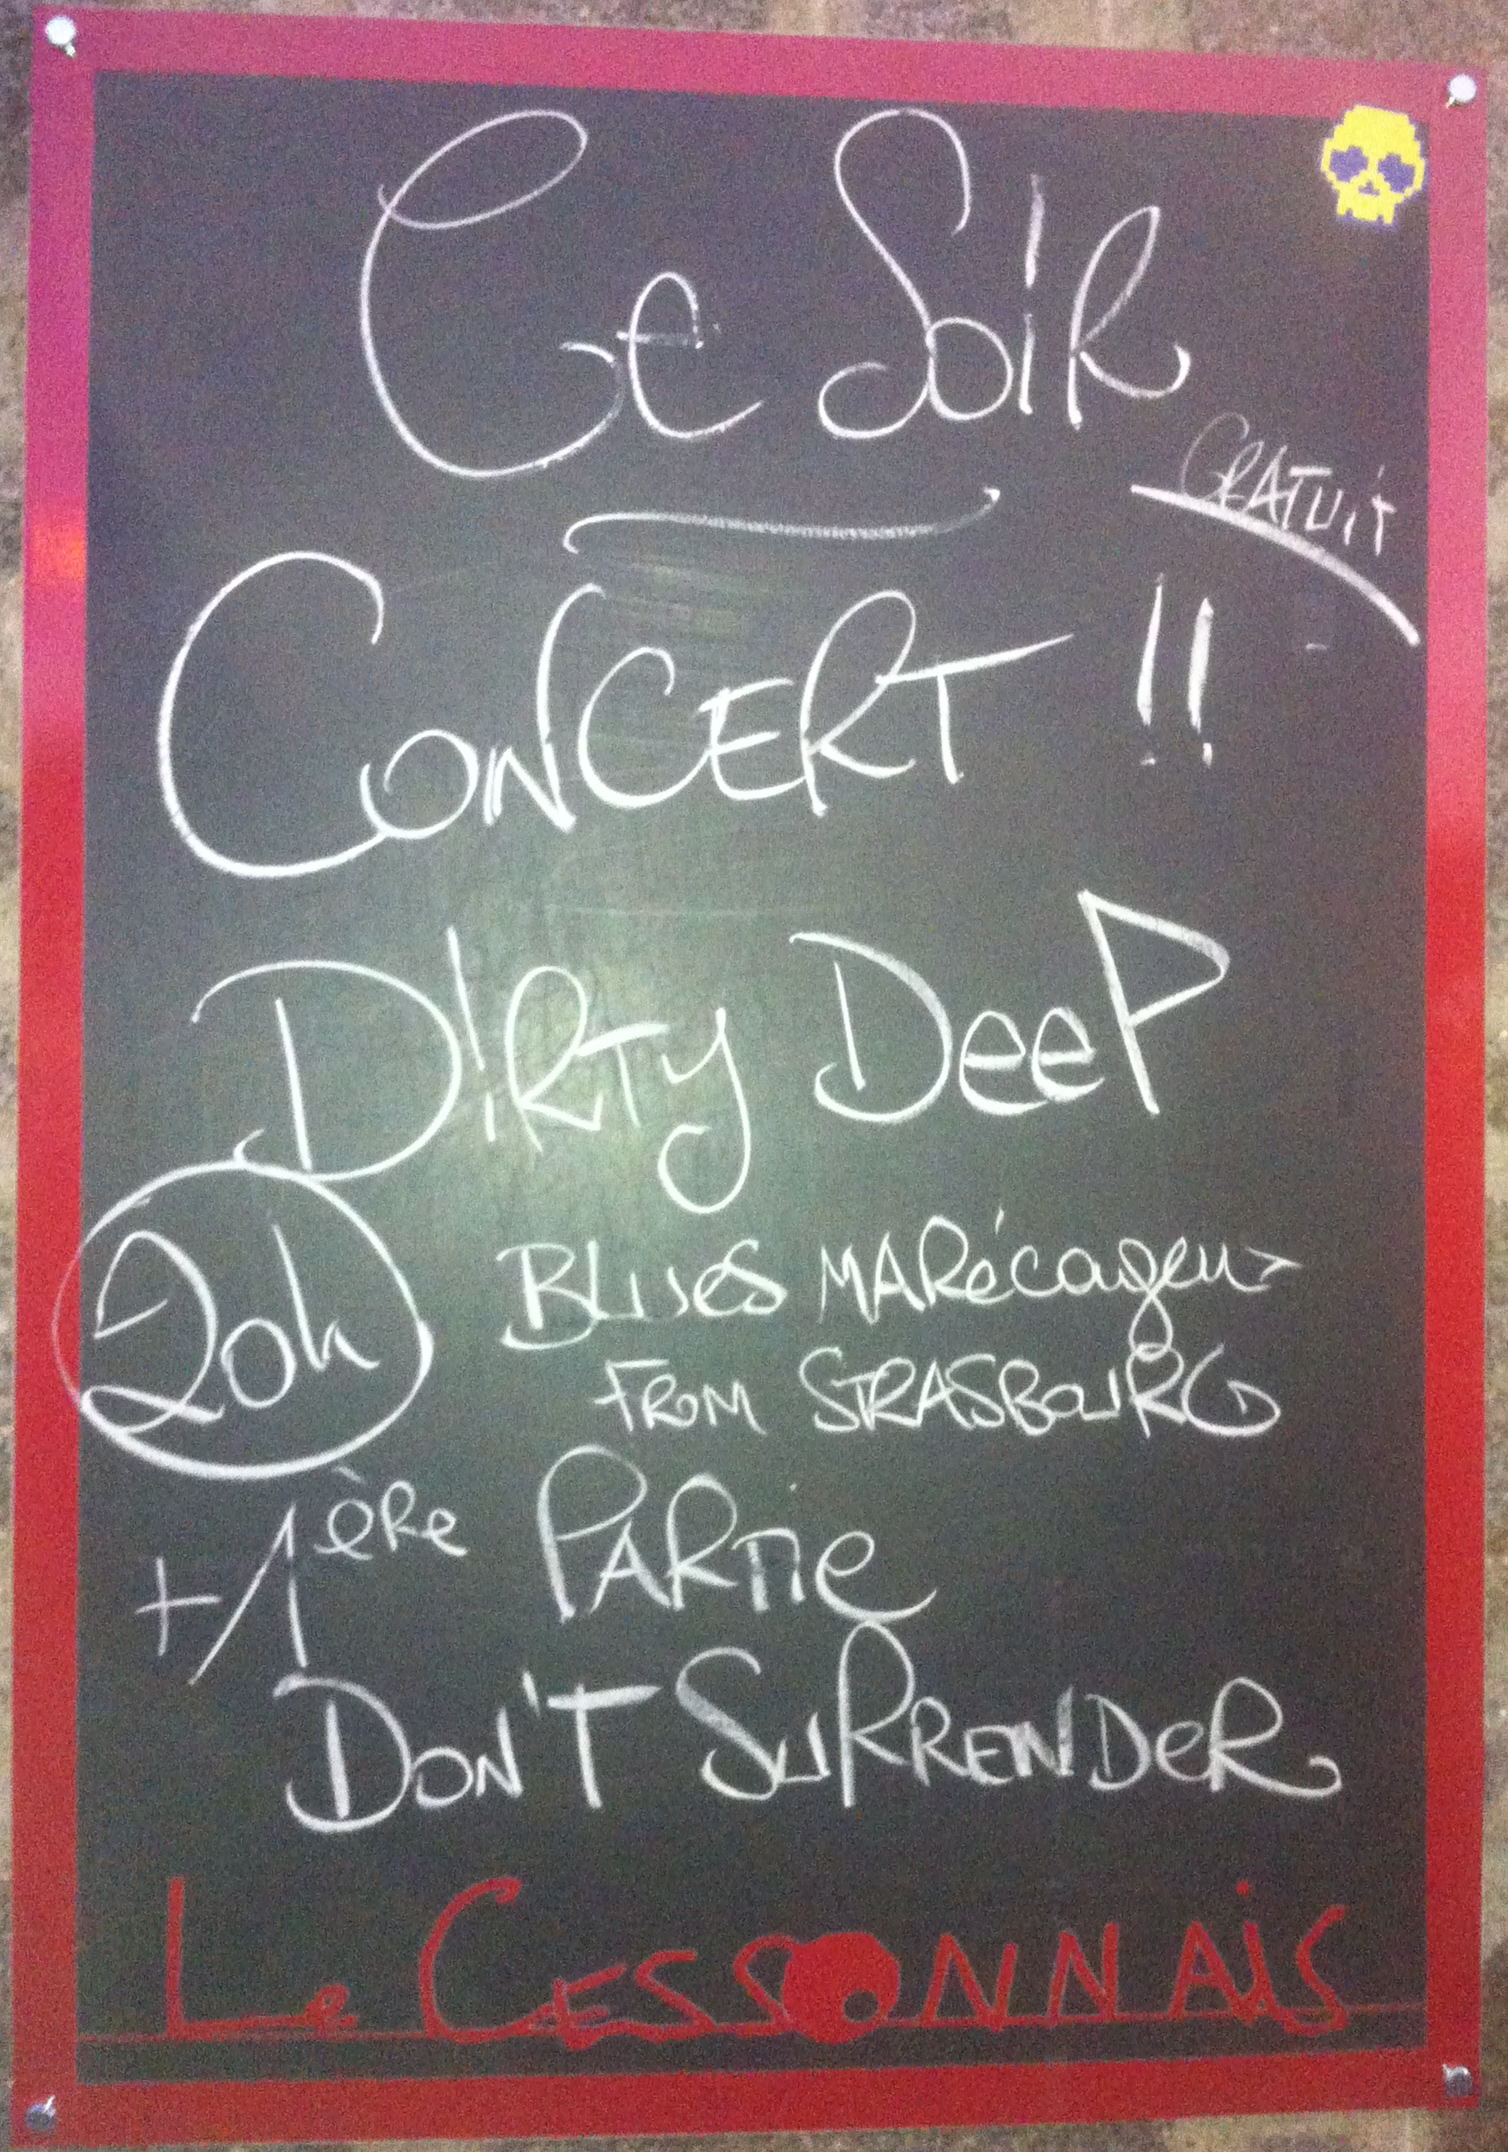 Ce Soir
GRATUIT
CONCERT !!
D!RTy DeeP
20h
BLUES MARécageux
FROM STRASBOURG
+ 1ère PARTie
DON'T SURRENDER
Le CESSONNAiS